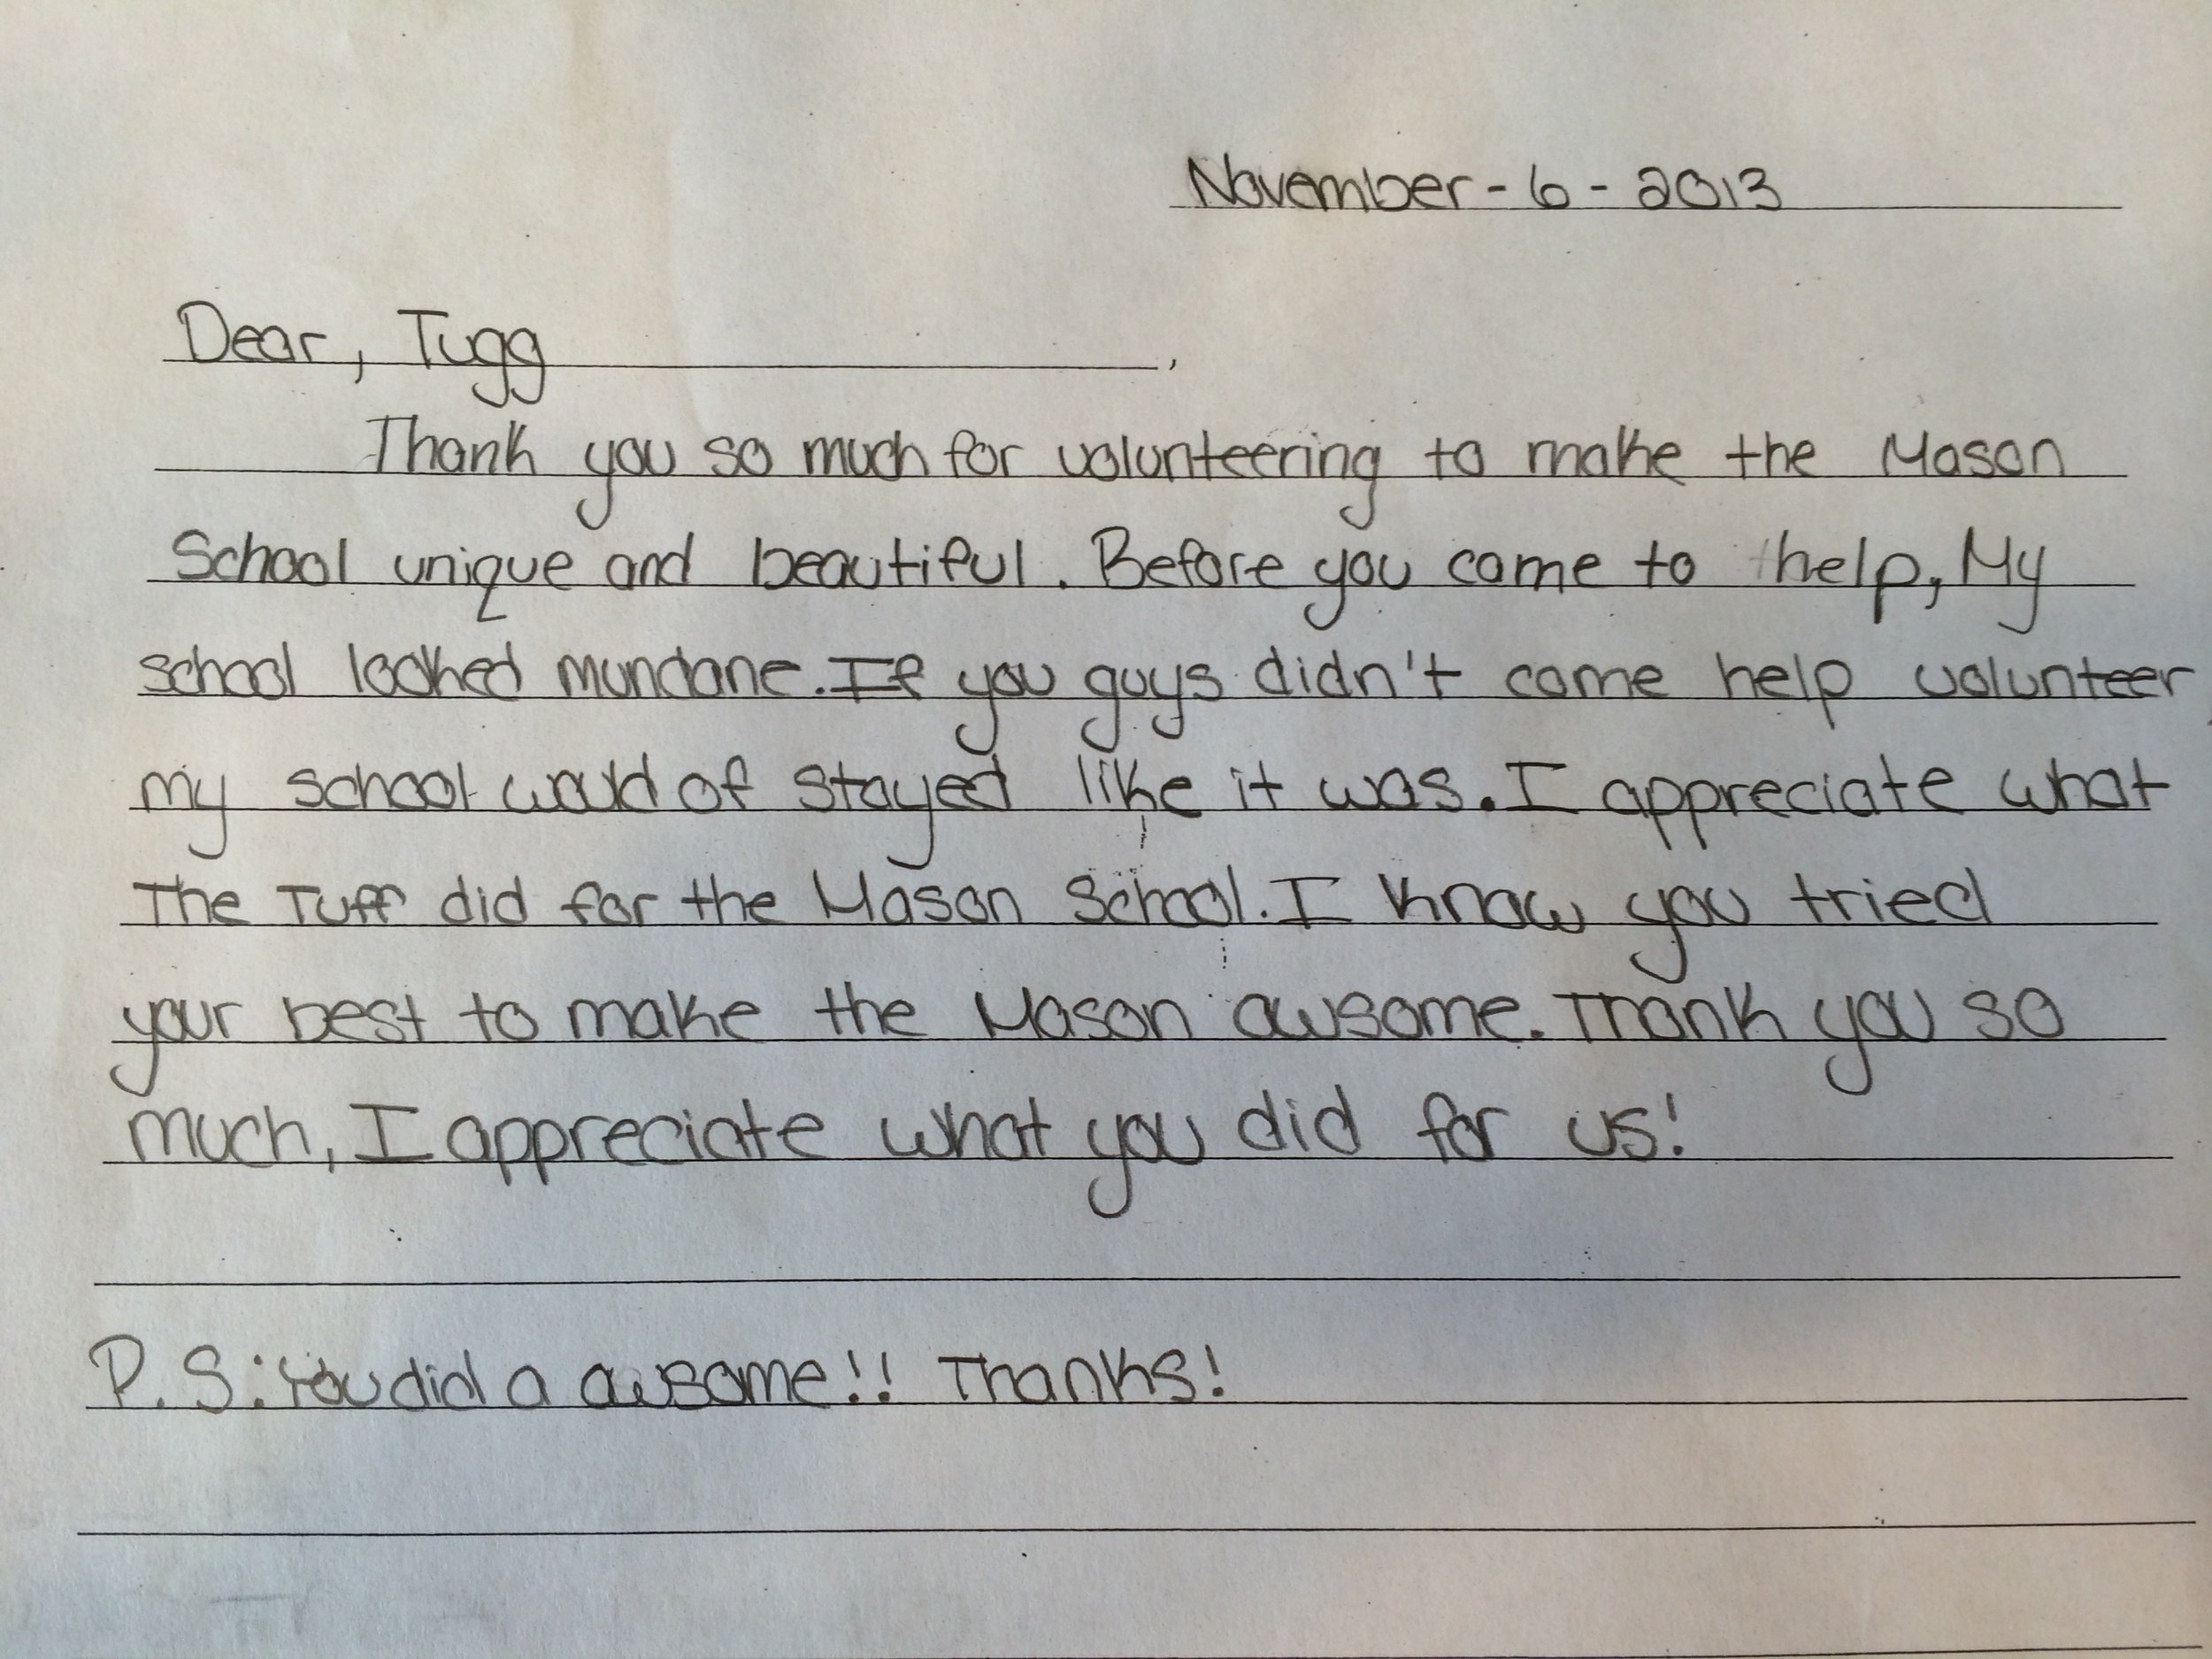 November - 6 - 2013
Dear, Tugg ,
Thank you so much for volunteering to make the Mason
School unique and beautiful. Before you came to help, My
school looked mundane. If you guys didn't come help volunteer
my school would of stayed like it was. I appreciate what
The Tuff did for the Mason School. I know you tried
your best to make the Mason awsome. Thank you so
much, I appreciate what you did for us!
P.S: You did a awsome!! Thanks!